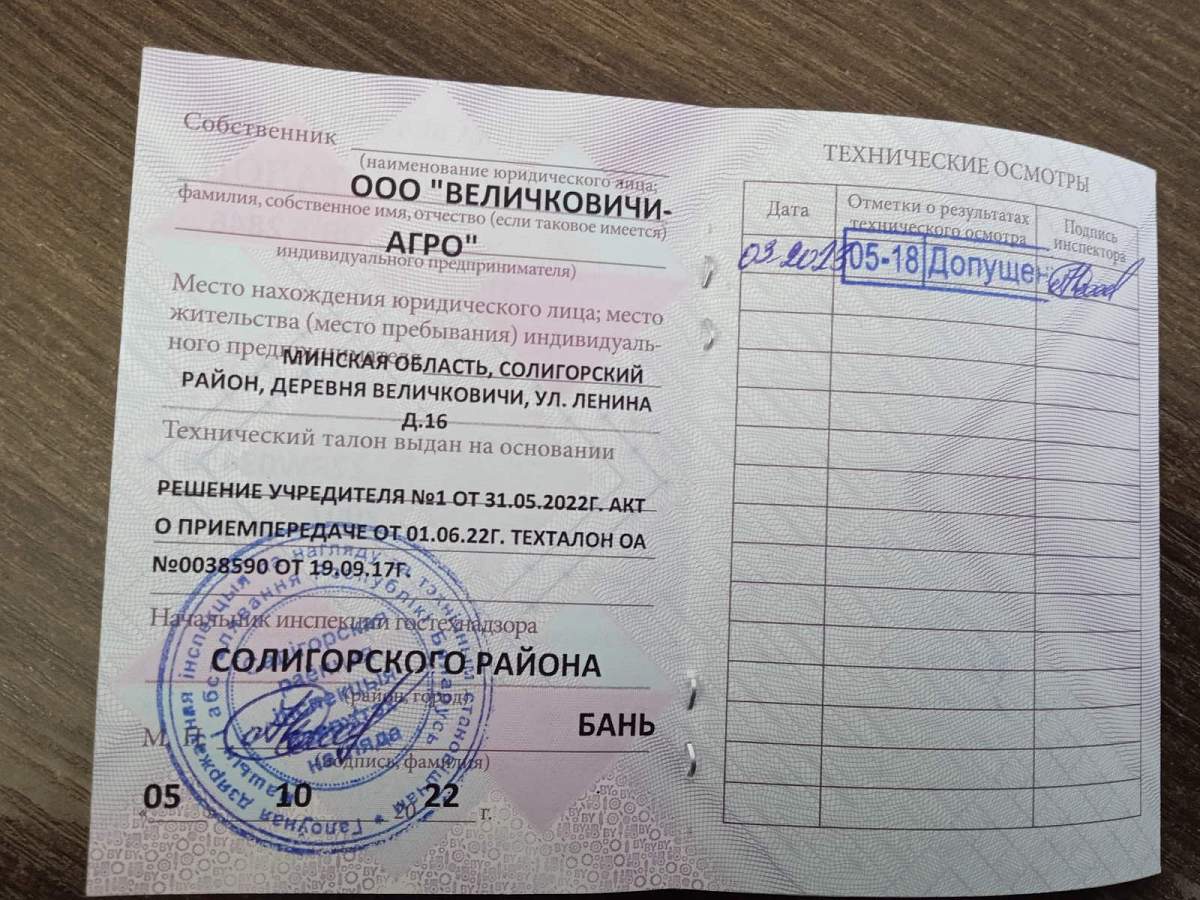 Собственник
(наименование юридического лица;
ООО "ВЕЛИЧКОВИЧИ-
фамилия, собственное имя, отчество (если таковое имеется)
АГРО"
индивидуального предпринимателя)
Место нахождения юридического лица; место
жительства (место пребывания) индивидуаль-
ного предпринимателя
МИНСКАЯ ОБЛАСТЬ, СОЛИГОРСКИЙ
РАЙОН, ДЕРЕВНЯ ВЕЛИЧКОВИЧИ, УЛ. ЛЕНИНА
Д.16
Технический талон выдан на основании
РЕШЕНИЕ УЧРЕДИТЕЛЯ №1 ОТ 31.05.2022Г. АКТ
О ПРИЕМПЕРЕДАЧЕ ОТ 01.06.22Г. ТЕХТАЛОН ОА
№0038590 ОТ 19.09.17Г.
Начальник инспекции гостехнадзора
СОЛИГОРСКОГО РАЙОНА
(район, город)
БАНЬ
М. П.
(подпись, фамилия)
05 10 22
" 20 г.
ТЕХНИЧЕСКИЕ ОСМОТРЫ
Дата
Отметки о результатах
технического осмотра
Подпись
инспектора
03 2023
05-18 Допущен